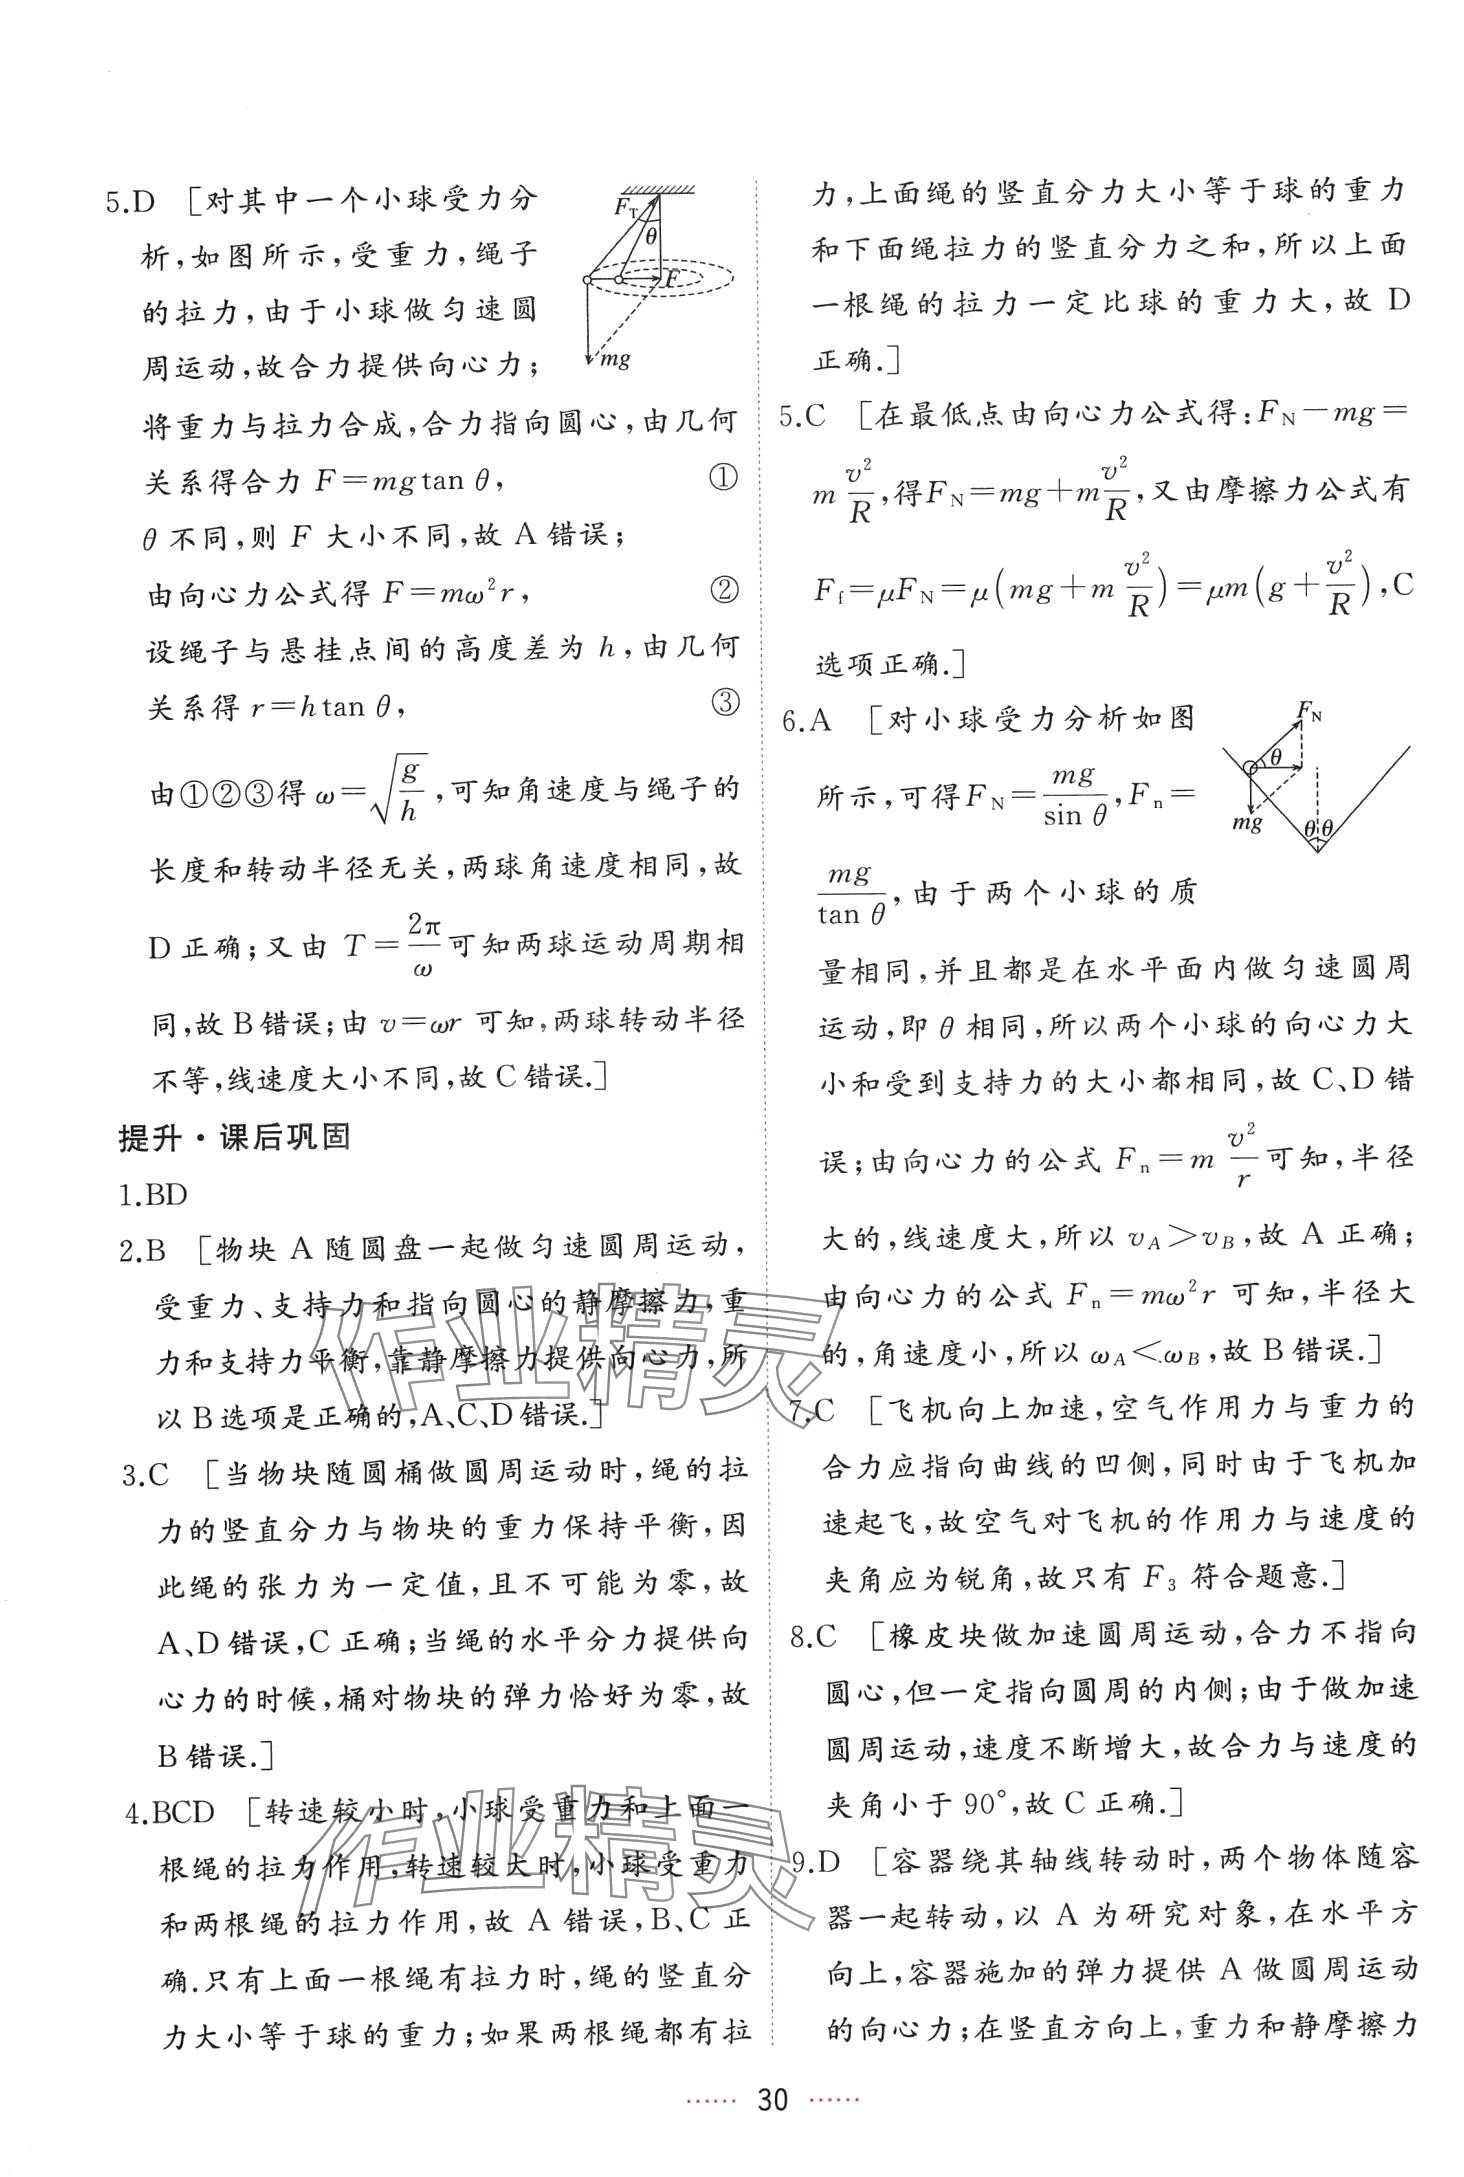 5.D [对其中一个小球受力分
析,如图所示,受重力,绳子
的拉力,由于小球做匀速圆
周运动,故合力提供向心力;
F_T
θ
F
mg
将重力与拉力合成,合力指向圆心,由几何
关系得合力 F=mgtan θ, ①
θ 不同,则 F 大小不同,故 A 错误;
由向心力公式得 F=mω²r, ②
设绳子与悬挂点间的高度差为 h,由几何
关系得 r=htan θ, ③
由①②③得 ω=√(g/h),可知角速度与绳子的
长度和转动半径无关,两球角速度相同,故
D 正确;又由 T=2π/ω 可知两球运动周期相
同,故 B 错误;由 v=ωr 可知,两球转动半径
不等,线速度大小不同,故 C 错误.]
提升·课后巩固
1.BD
2.B [物块 A 随圆盘一起做匀速圆周运动,
受重力、支持力和指向圆心的静摩擦力,重
力和支持力平衡,靠静摩擦力提供向心力,所
以 B 选项是正确的,A、C、D 错误.]
3.C [当物块随圆桶做圆周运动时,绳的拉
力的竖直分力与物块的重力保持平衡,因
此绳的张力为一定值,且不可能为零,故
A、D 错误,C 正确;当绳的水平分力提供向
心力的时候,桶对物块的弹力恰好为零,故
B 错误.]
4.BCD [转速较小时,小球受重力和上面一
根绳的拉力作用,转速较大时,小球受重力
和两根绳的拉力作用,故 A 错误,B、C 正
确.只有上面一根绳有拉力时,绳的竖直分
力大小等于球的重力;如果两根绳都有拉
力,上面绳的竖直分力大小等于球的重力
和下面绳拉力的竖直分力之和,所以上面
一根绳的拉力一定比球的重力大,故 D
正确.]
5.C [在最低点由向心力公式得:F_N-mg=
m v²/R,得F_N=mg+m v²/R,又由摩擦力公式有
F_f=μF_N=μ(mg+m v²/R)=μm(g+v²/R),C
选项正确.]
6.A [对小球受力分析如图
所示,可得F_N=mg/sin θ,F_n=
mg/tan θ,由于两个小球的质
F_N
θ
mg
θ θ
量相同,并且都是在水平面内做匀速圆周
运动,即 θ 相同,所以两个小球的向心力大
小和受到支持力的大小都相同,故 C、D 错
误;由向心力的公式 F_n=m v²/r 可知,半径
大的,线速度大,所以 v_A>v_B,故 A 正确;
由向心力的公式 F_n=mω²r 可知,半径大
的,角速度小,所以 ω_A<ω_B,故 B 错误.]
7.C [飞机向上加速,空气作用力与重力的
合力应指向曲线的凹侧,同时由于飞机加
速起飞,故空气对飞机的作用力与速度的
夹角应为锐角,故只有 F₃ 符合题意.]
8.C [橡皮块做加速圆周运动,合力不指向
圆心,但一定指向圆周的内侧;由于做加速
圆周运动,速度不断增大,故合力与速度的
夹角小于 90°,故 C 正确.]
9.D [容器绕其轴线转动时,两个物体随容
器一起转动,以 A 为研究对象,在水平方
向上,容器施加的弹力提供 A 做圆周运动
的向心力;在竖直方向上,重力和静摩擦力
作业精灵
作业精灵
30